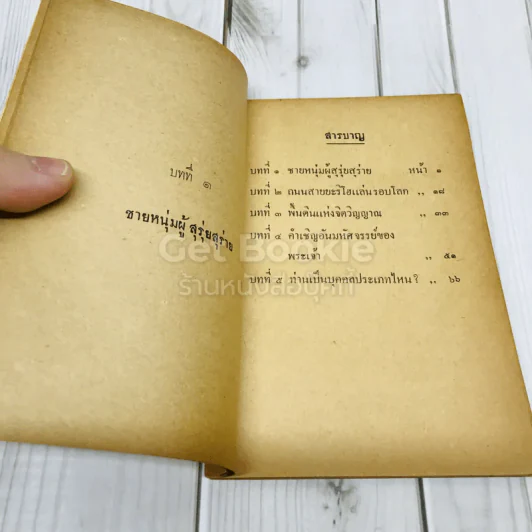 บทที่ ๑
ชายหนุ่มผู้สุรุ่ยสุร่าย
สารบาญ
บทที่ ๑ ชายหนุ่มผู้สุรุ่ยสุร่าย หน้า ๑
บทที่ ๒ ถนนสายยะริโฮแล่นรอบโลก ,, ๑๘
บทที่ ๓ พื้นดินแห่งจิตวิญญาณ ,, ๓๓
บทที่ ๔ คำเชิญอันมหัศจรรย์ของ
พระเจ้า ,, ๕๑
บทที่ ๕ ท่านเป็นบุคคลประเภทไหน ? ,, ๖๖
Get Bookie
ร้านหนังสือบุ๊คกี้